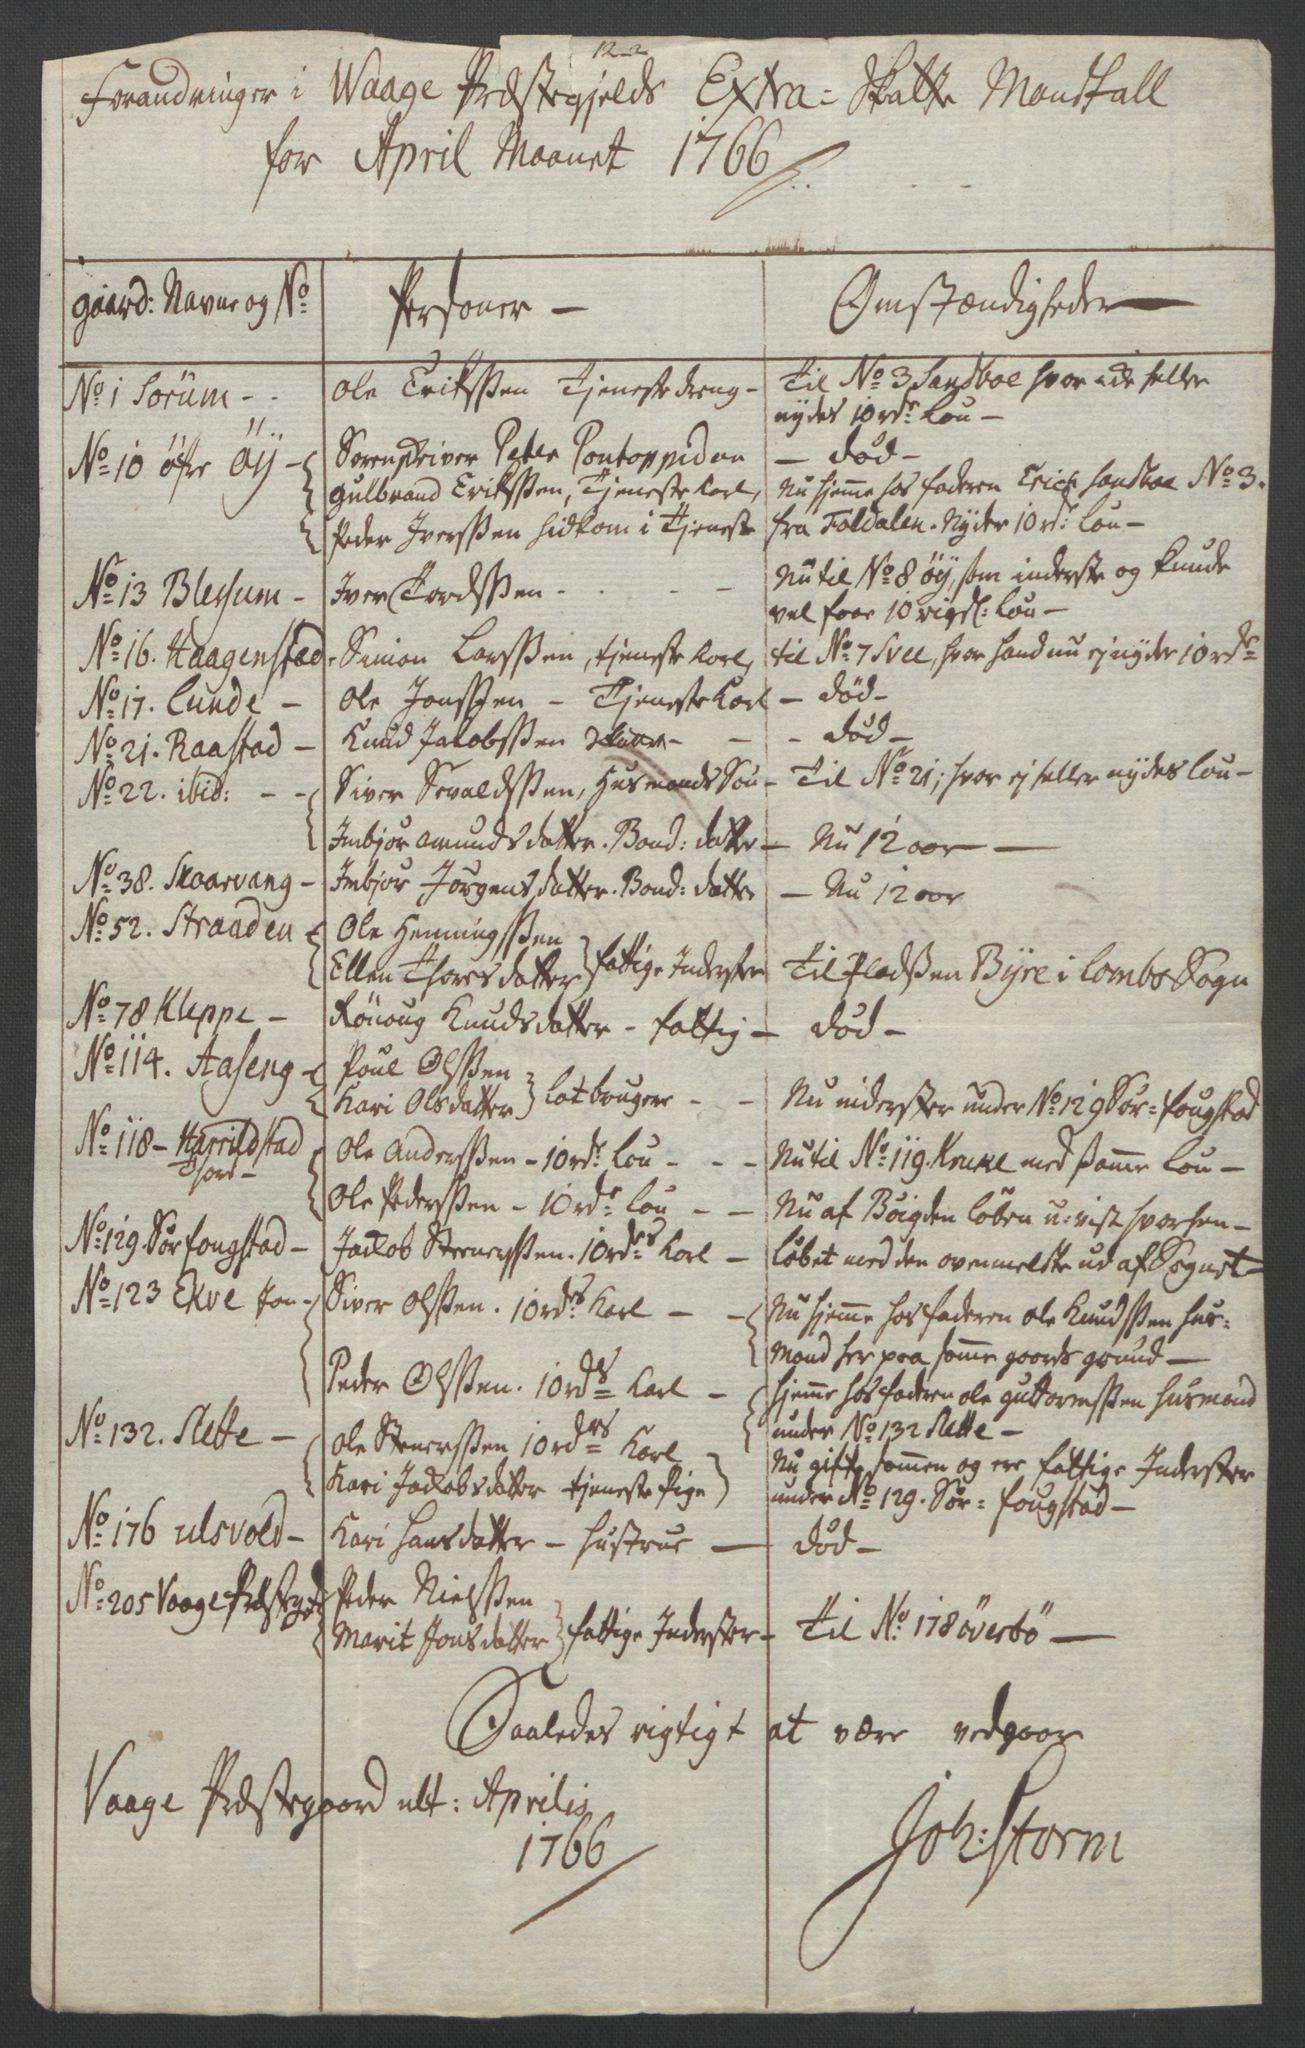 12-2
Forandringer i Waage Præstegjelds Extra-Skatte Mandtall
for April Maanet 1766
gaard: Navne og No
Personer —
Omstændigheder —
No 1 Sorum - -
Ole Erikssen Tjeneste dreng -
Til No 3 Sandboe hvor icke heller
nydes 10 rdr Lön —
No 10 öfre Öÿ -
Sorenskriver Peter Pontoppidan
— död —
Gulbrand Erikssen, Tjeneste Karl,
Nu hjemme hos faderen Erich Sandboe No 3.
Peder Iverssen hidkom i Tjeneste
fra Foldalen. Nyder 10 rd: Lön —
No 13 Blessum -
Iver Tordssen - - - -
Nu til No 8 öÿ, som inderste og kunde
vel faae 10 rigsd: Lön —
No 16. Haagenstad
Simon Larssen, tjeneste Karl,
til No 7 Svee, hvor hand nu ej nyder 10 rdr
No 17. Lunde -
Ole Jonssen - Tjeneste Karl
— död —
No 21. Raastad -
Knud Jakobssen - -
- död —
No 22. ibid: - -
Siver Sevaldssen, Husmands Sön -
Til No 21; hvor ej heller nydes Lön —
Imbjör Amundsdatter. Bond: datter —
Nu 12 aar —
No 38. Skaarvang -
Imbjör Jörgensdatter. Bond: datter
— Nu 12 aar
No 52. Straaden
Ole Henningssen
Ellen Thoresdatter } fattige Inderster
Til Pladssen Bÿre i Lombs Sogn
No 78 Kleppe -
Rönoug Knudsdatter - fattig —
död —
No 114. Aaseng -
Poul Olssen
Kari Olsdatter } lotbrugere - -
Nu inderster under No 129 Sör-fougstad
No 118 - Harrildstad
Ole Anderssen - 10 rdr Lön - - -
Nu til No 119. Kruke med samme Lön —
Ole Pederssen - 10 rdr Lön - -
Nu af Böigden löben u-vist hvorhen —
No 129. Sör fougstad -
Jackob Stenerssen. 10 rdrs Karl -
Löbet med den ovenmelte ud af Sognet
No 123 Ekre
Siver Olssen. 10 rdrs Karl - -
Nu hjemme hos faderen Ole Knudssen hus-
mand her paa samme gaards grund —
Peder Olssen. 10 rds Karl -
hjemme hos faderen Ole Guttormssen husmand
under No 132 Slette —
No 132. Slette -
Ole Stenerssen 10 rdrs Karl
Kari Jackobsdatter tjeneste Pige }
Nu gifte sammen og ere fattige Inderster
under No 129. Sör-fougstad —
No 176 Ulsvold -
Kari Hansdatter - hustrue —
död —
No 205 Vaage Præstegd
Peder Nielssen
Marit Jonsdatter } fattige Inderster -
Til No 178 överbö —
Saaledes rigtigt at være vedgaar
Vaage Præstegaard ult: Aprilis
1766
Joh: Storm